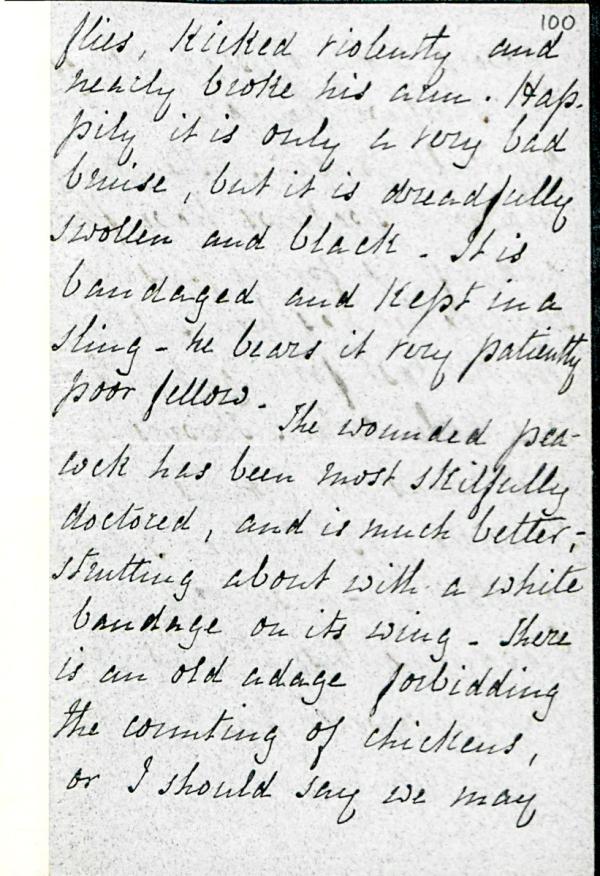 100
flies, kicked violently and
nearly broke his arm. Hap-
pily it is only a very bad
bruise, but it is dreadfully
swollen and black. It is
bandaged and kept in a
sling - he bears it very patiently
poor fellow.
The wounded pea-
cock has been most skilfully
doctored, and is much better,-
strutting about with a white
bandage on its wing - There
is an old adage forbidding
the counting of chickens,
or I should say we may